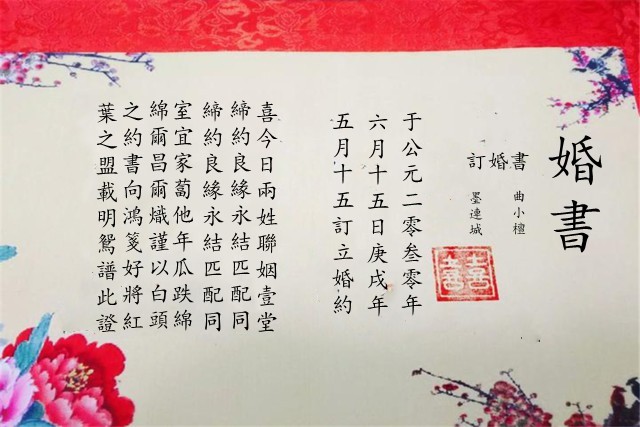 婚書
訂婚書
曲小檀
墨連城
囍
于公元二零叁零年
六月十五日庚戌年
五月十五訂立婚約
喜今日兩姓聯姻壹堂
締約良緣永結匹配同
締約良緣永結匹配同
室宜家蔔他年瓜跌綿
綿爾昌爾熾謹以白頭
之約書向鴻箋好將紅
葉之盟載明鴛譜此證